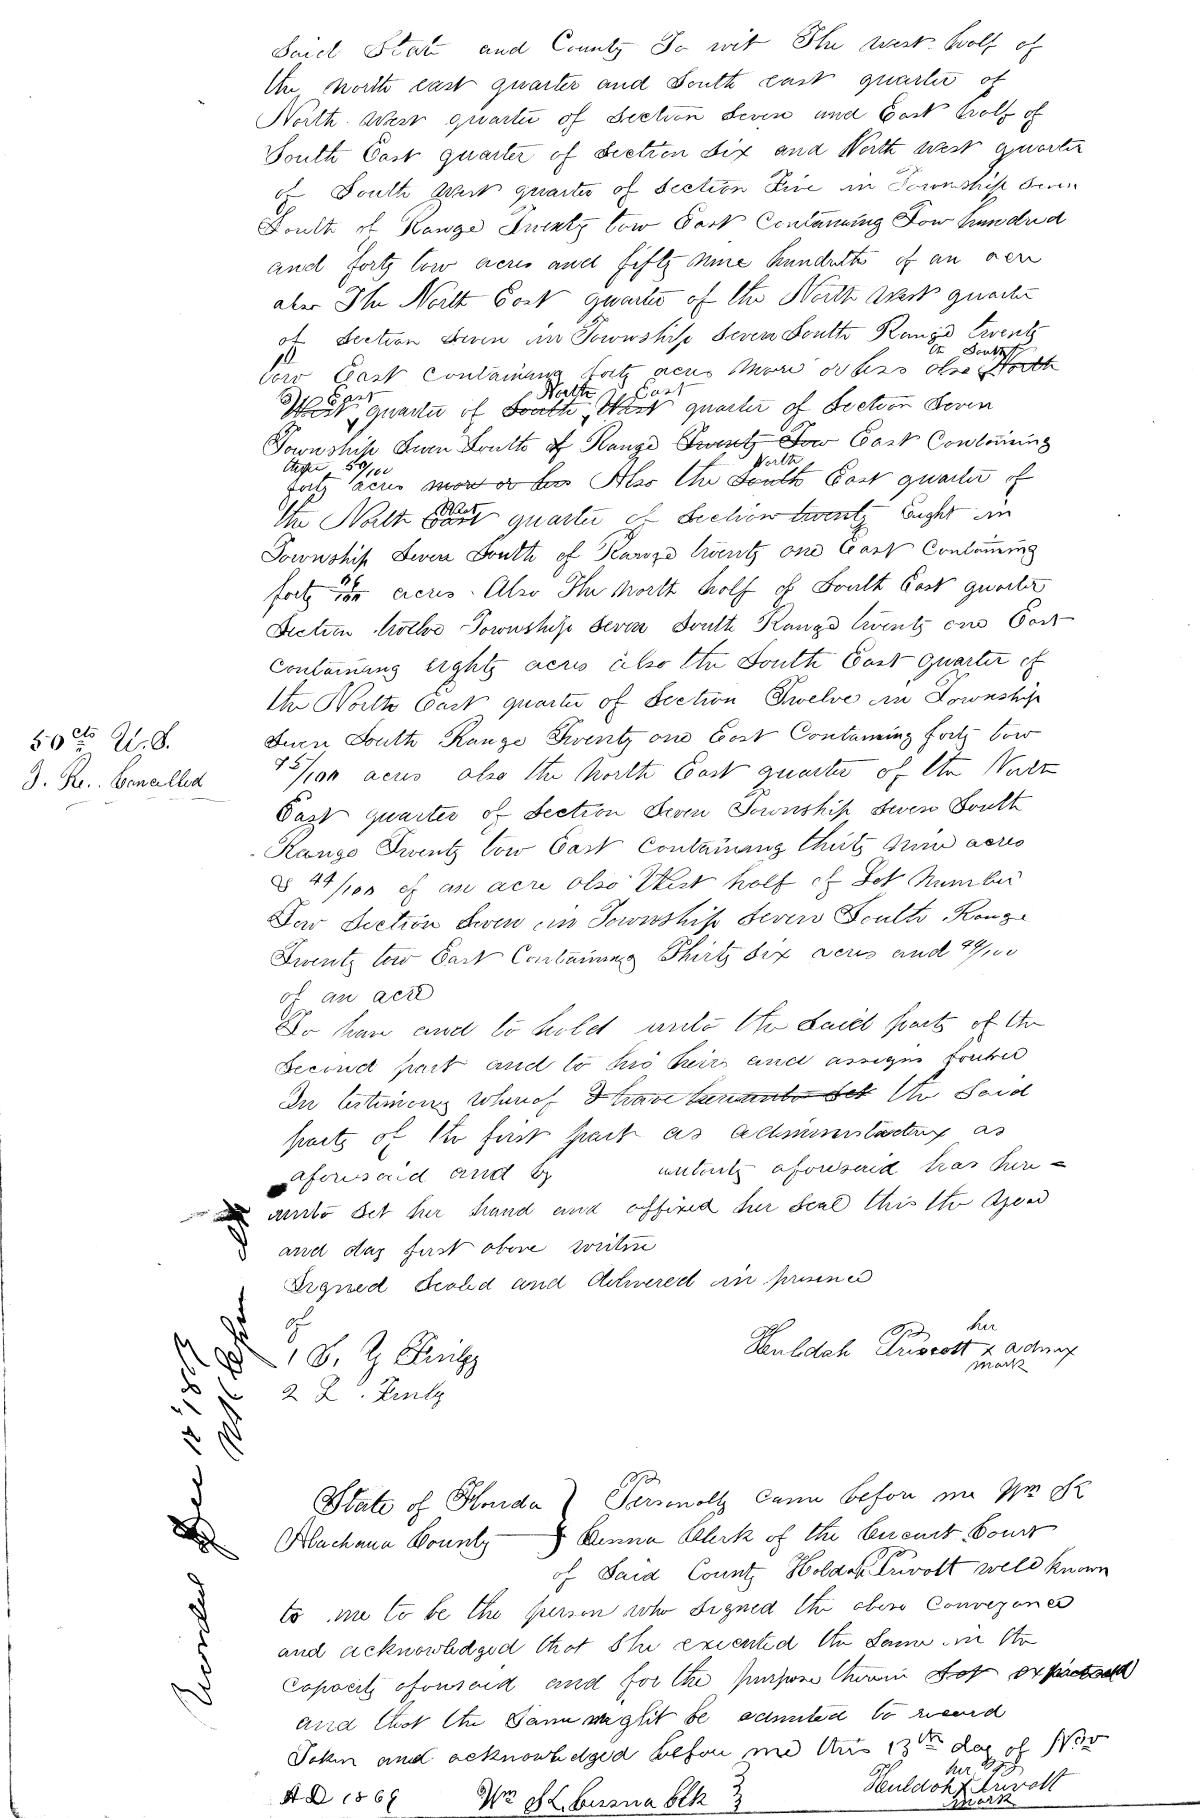 Said State and County To wit The west half of
the north east quarter and South east quarter of
North west quarter of Section Seven and East half of
South East quarter of Section Six and North west quarter
of South West quarter of Section Five in Township Seven
South of Range Twenty tow East Containing Tow hundred
and forty tow acres and fifty nine hundreths of an acre
also The North East quarter of the North West quarter
of Section Seven in Township Seven South Range twenty
tow East Containing forty acres more or less also the South North
West East quarter of South North West East quarter of Section Seven
Township Seven South of Range Twenty Tow East Containing
forty three 50/100 acres more or less Also the South North East quarter of
the North East West quarter of Section twenty Eight in
Township Seven South of Range twenty one East Containing
forty 06/100 acres. Also The north half of South East quarter
Section twelve Township Seven South Range twenty one East
Containing eighty acres also the South East quarter of
the North East quarter of Section Twelve in Township
Seven South Range Twenty one East Containing forty tow
75/100 acres also the North East quarter of the North
East quarter of Section Seven Township Seven South
Range Twenty tow East Containing thirty nine acres
& 44/100 of an acre also West half of Lot Number
Tow Section Seven in Township Seven South Range
Twenty tow East Containing Thirty Six acres and 99/100
of an acre
50 cts U.S.
I. Re.. Cancelled
To have and to hold unto the Said party of the
Second part and to his heirs and assigns forever
In testimony whereof I have hereunto Set the Said
party of the first part as administratrix as
aforesaid and by autority aforesaid has here=
unto Set her hand and affixed her Seal this the year
and day first above writen
Signed Sealed and delivered in presence
of
1 S. Y Finley
2 L. Finly
Huldah Privott her x mark admx
Recorded Dec 12th 1869
State of Florida } Personally came before me Wm K
Alachaua County } Cessna Clerk of the Circuit Court
of Said County Holdah Privott well known
to me to be the person who Signed the above Conveyance
and acknowledged that She executed the Same in the
Capacity aforesaid and for the purpose therein Set expressed
and that the Same might be admited to record
Taken and acknowledged before me this 13th day of Nov
AD 1869 Wm K Cessna Clk } Huldah her x mark Privott